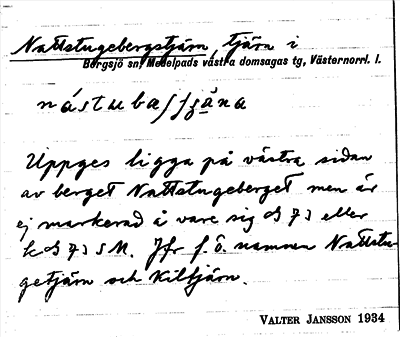 Nattstugebergstjärn, tjärn i
Bergsjö sn, Medelpads västra domsagas tg, Västernorrl. l.
Uppges ligga på västra sidan
av berget Nattstugeberget men är
ej markerad å vare sig eller
Jfr f. ö. namnen Nattstu-
getjärn och Kiltjärn.
VALTER JANSSON 1934